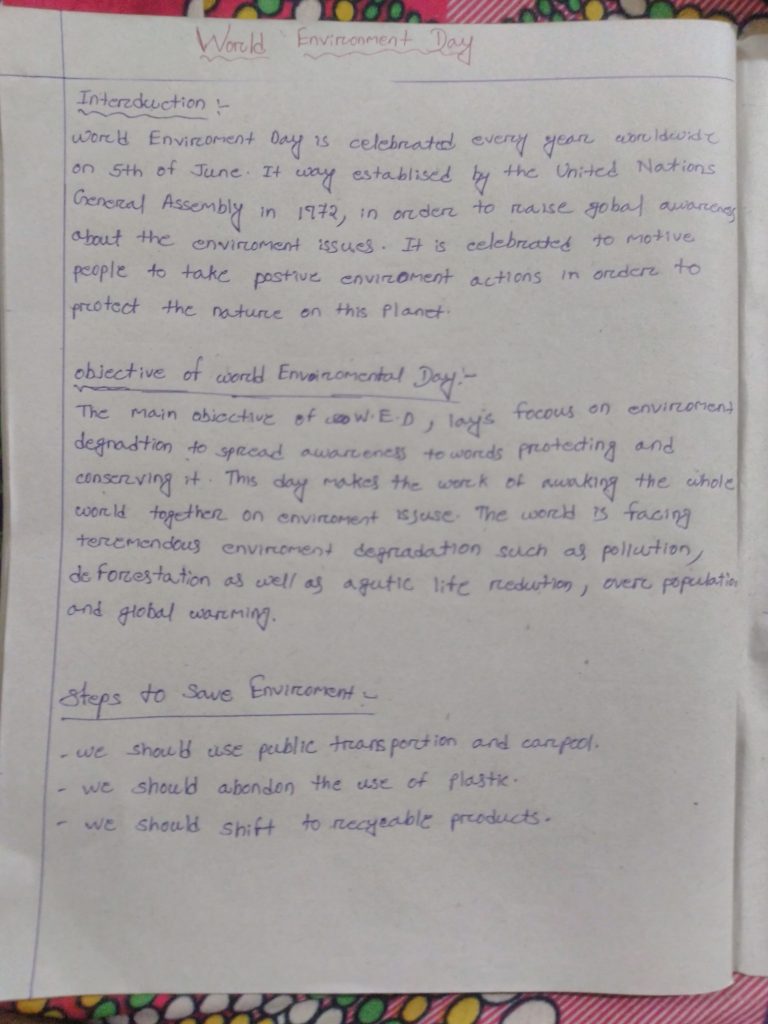 World Environment Day
Interduction :-
World Enviroment Day is celebrated every year worldwide
on 5th of June. It way establised by the United Nations
General Assembly in 1972, in order to raise gobal awareness
about the enviroment issues. It is celebrated to motive
people to take postive enviroment actions in order to
protect the nature on this Planet.
objective of world Enviromental Day:-
The main objective of W.E.D, lays focous on enviroment
degradtion to spread awareness towords protecting and
conserving it. This day makes the work of awaking the whole
world together on enviroment issuse. The world is facing
teremendous enviroment degradation such as pollution,
deforestation as well as aqutic life reduction, over population
and global warming.
Steps to Save Enviroment :-
- we should use public transportion and carpool.
- we should abondon the use of plastic.
- we should shift to recyeable products.